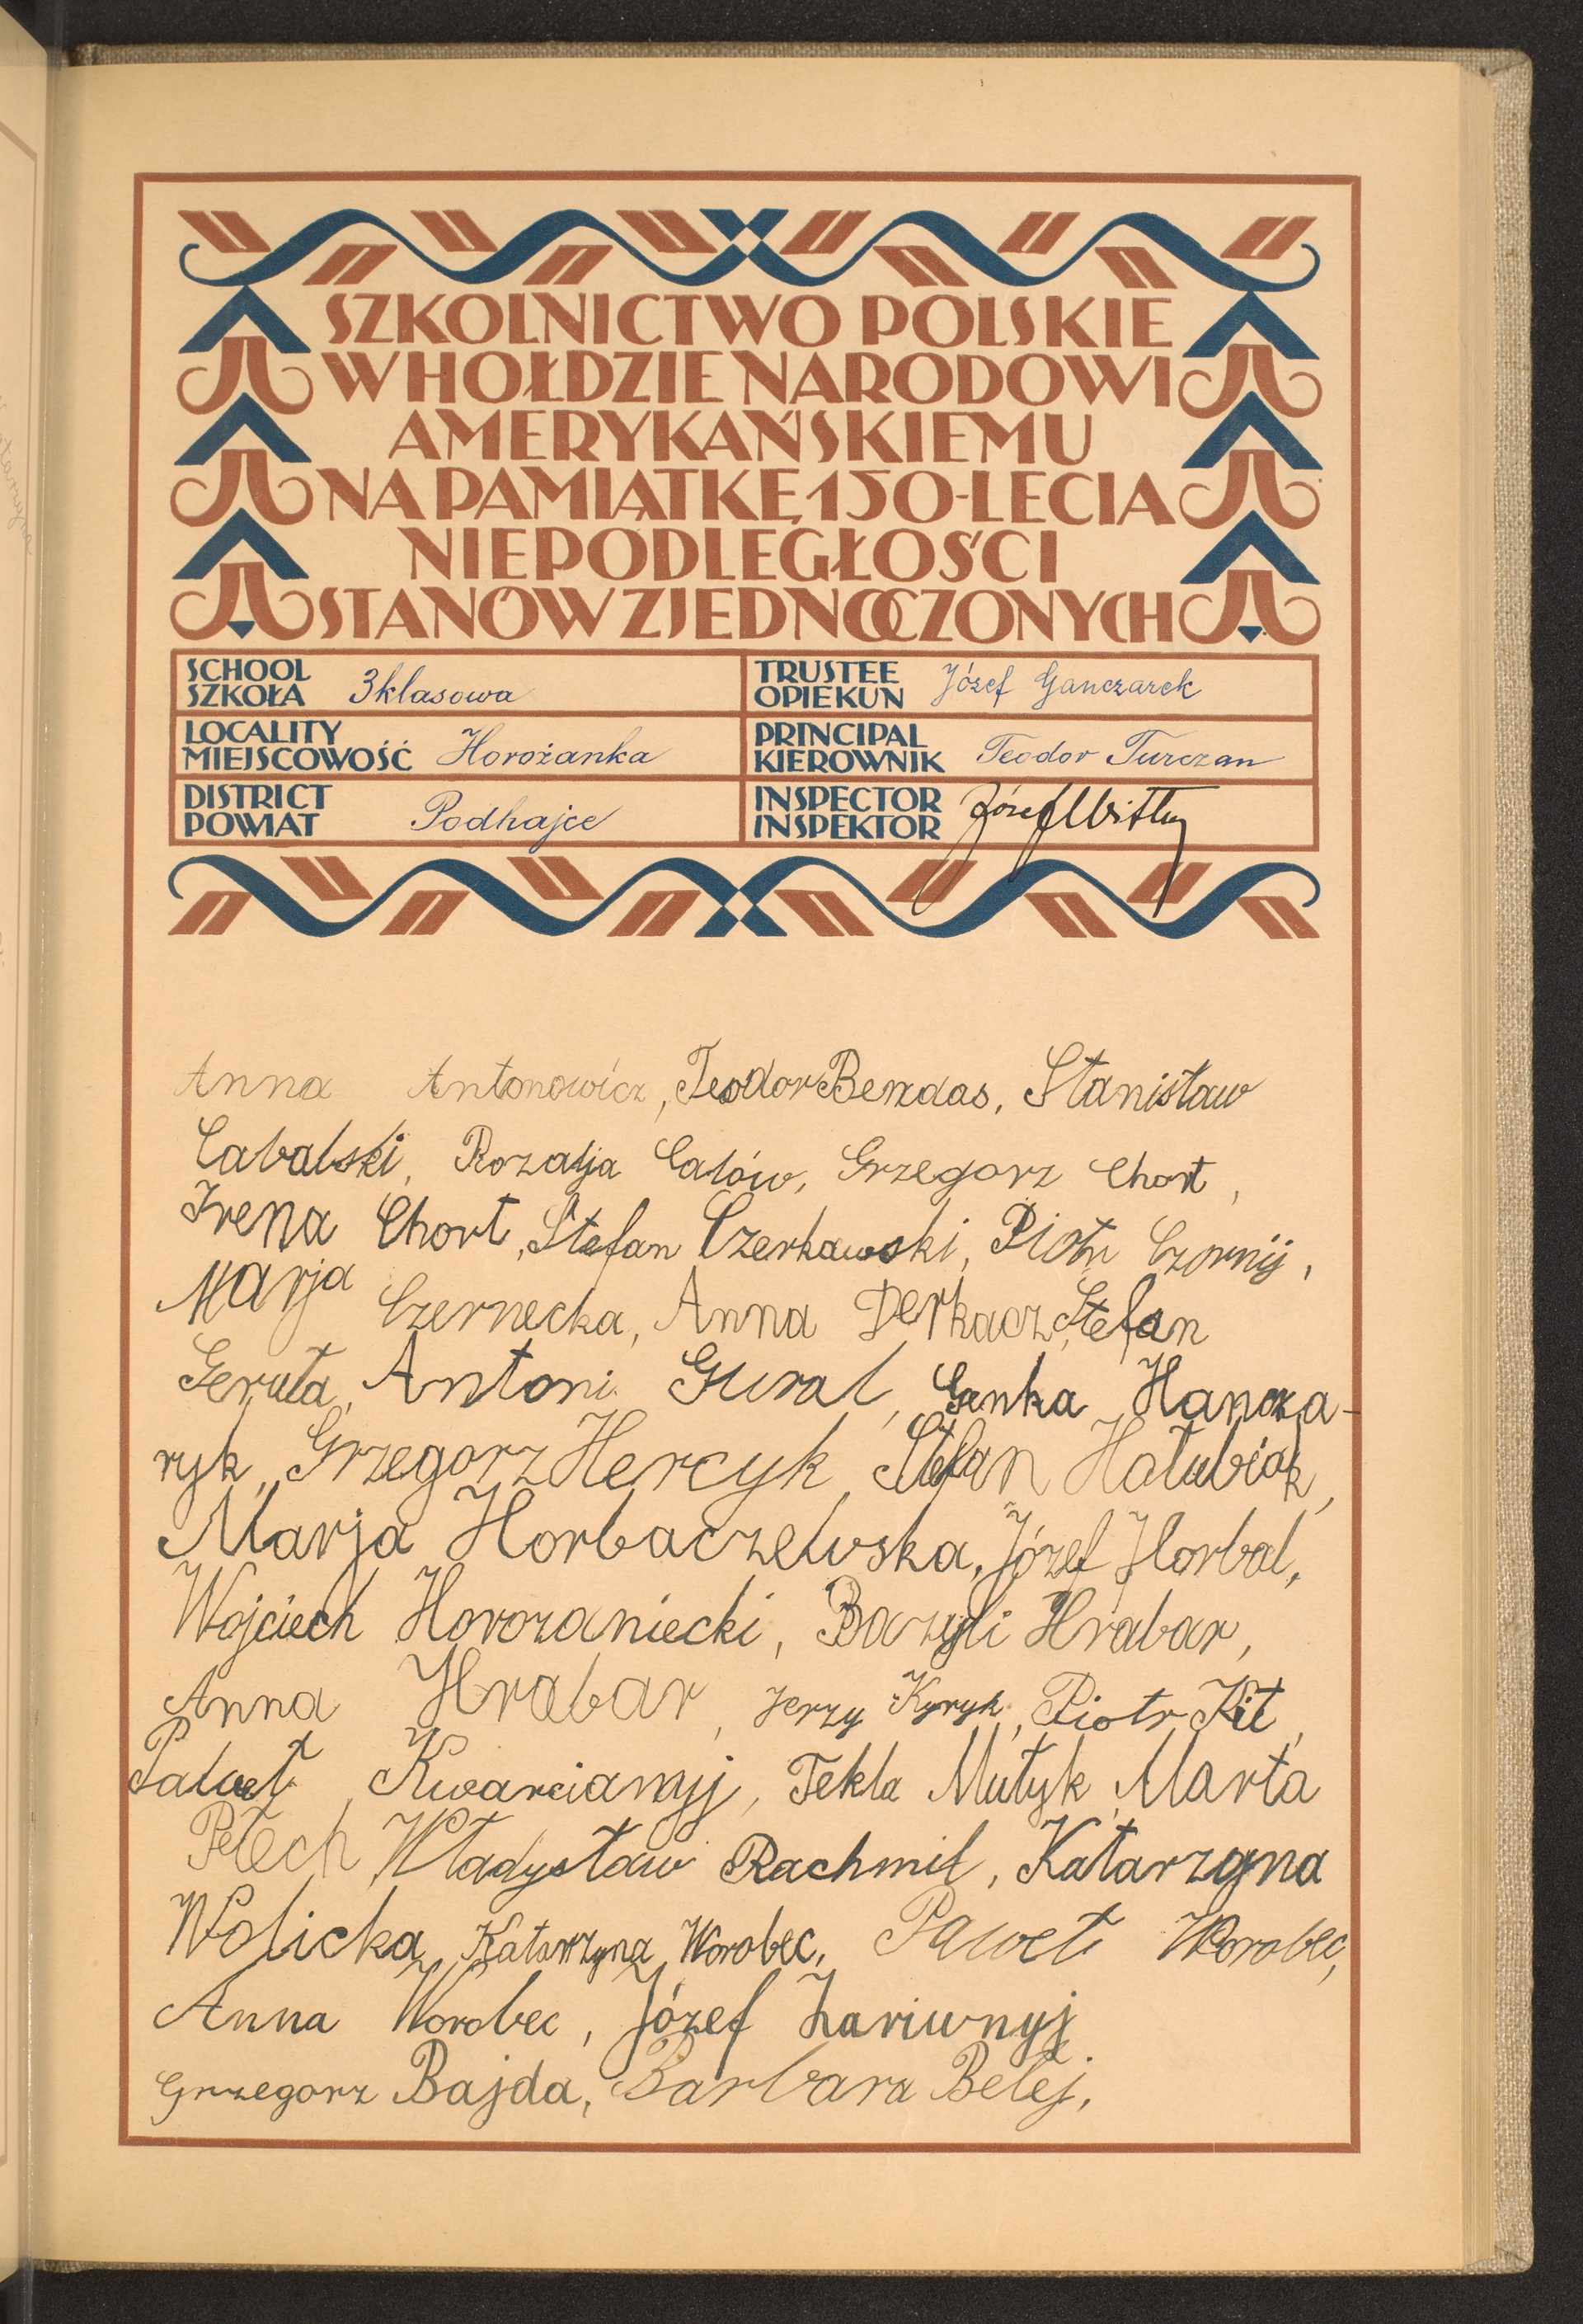 SZKOLNICTWO POLSKIE
W HOŁDZIE NARODOWI
AMERYKAŃSKIEMU
NA PAMIĄTKĘ 150-LECIA
NIEPODLEGŁOŚCI
STANÓW ZJEDNOCZONYCH
SCHOOL
SZKOŁA 3klasowa
TRUSTEE
OPIEKUN Józef Ganczarek
LOCALITY
MIEJSCOWOŚĆ Horożanka
PRINCIPAL
KIEROWNIK Teodor Turczan
DISTRICT
POWIAT Podhajce
INSPECTOR
INSPEKTOR Józef Wittlin
Anna Antonowicz, Teodor Bezdas, Stanisław
Cabalski, Rozalja Całów, Grzegorz Chort,
Irena Chort, Stefan Czerkawski, Piotr Czornij,
Marja Czernecka, Anna Derkacz, Stefan
Geruta, Antoni Gural, Genka Hancza-
ryk, Grzegorz Hercyk, Stefan Hałubiak,
Marja Horbaczewska, Józef Horbal,
Wojciech Horozaniecki, Bazyli Hrabar,
Anna Hrabar, Jerzy Kyryk, Piotr Kit,
Paweł Kwarcianyj, Tekla Mutyk, Marta
Petech, Władysław Rachmil, Katarzyna
Wolicka, Katarzyna Worobec, Paweł Worobec,
Anna Worobec, Józef Zariwnyj
Grzegorz Bajda, Barbara Belej,